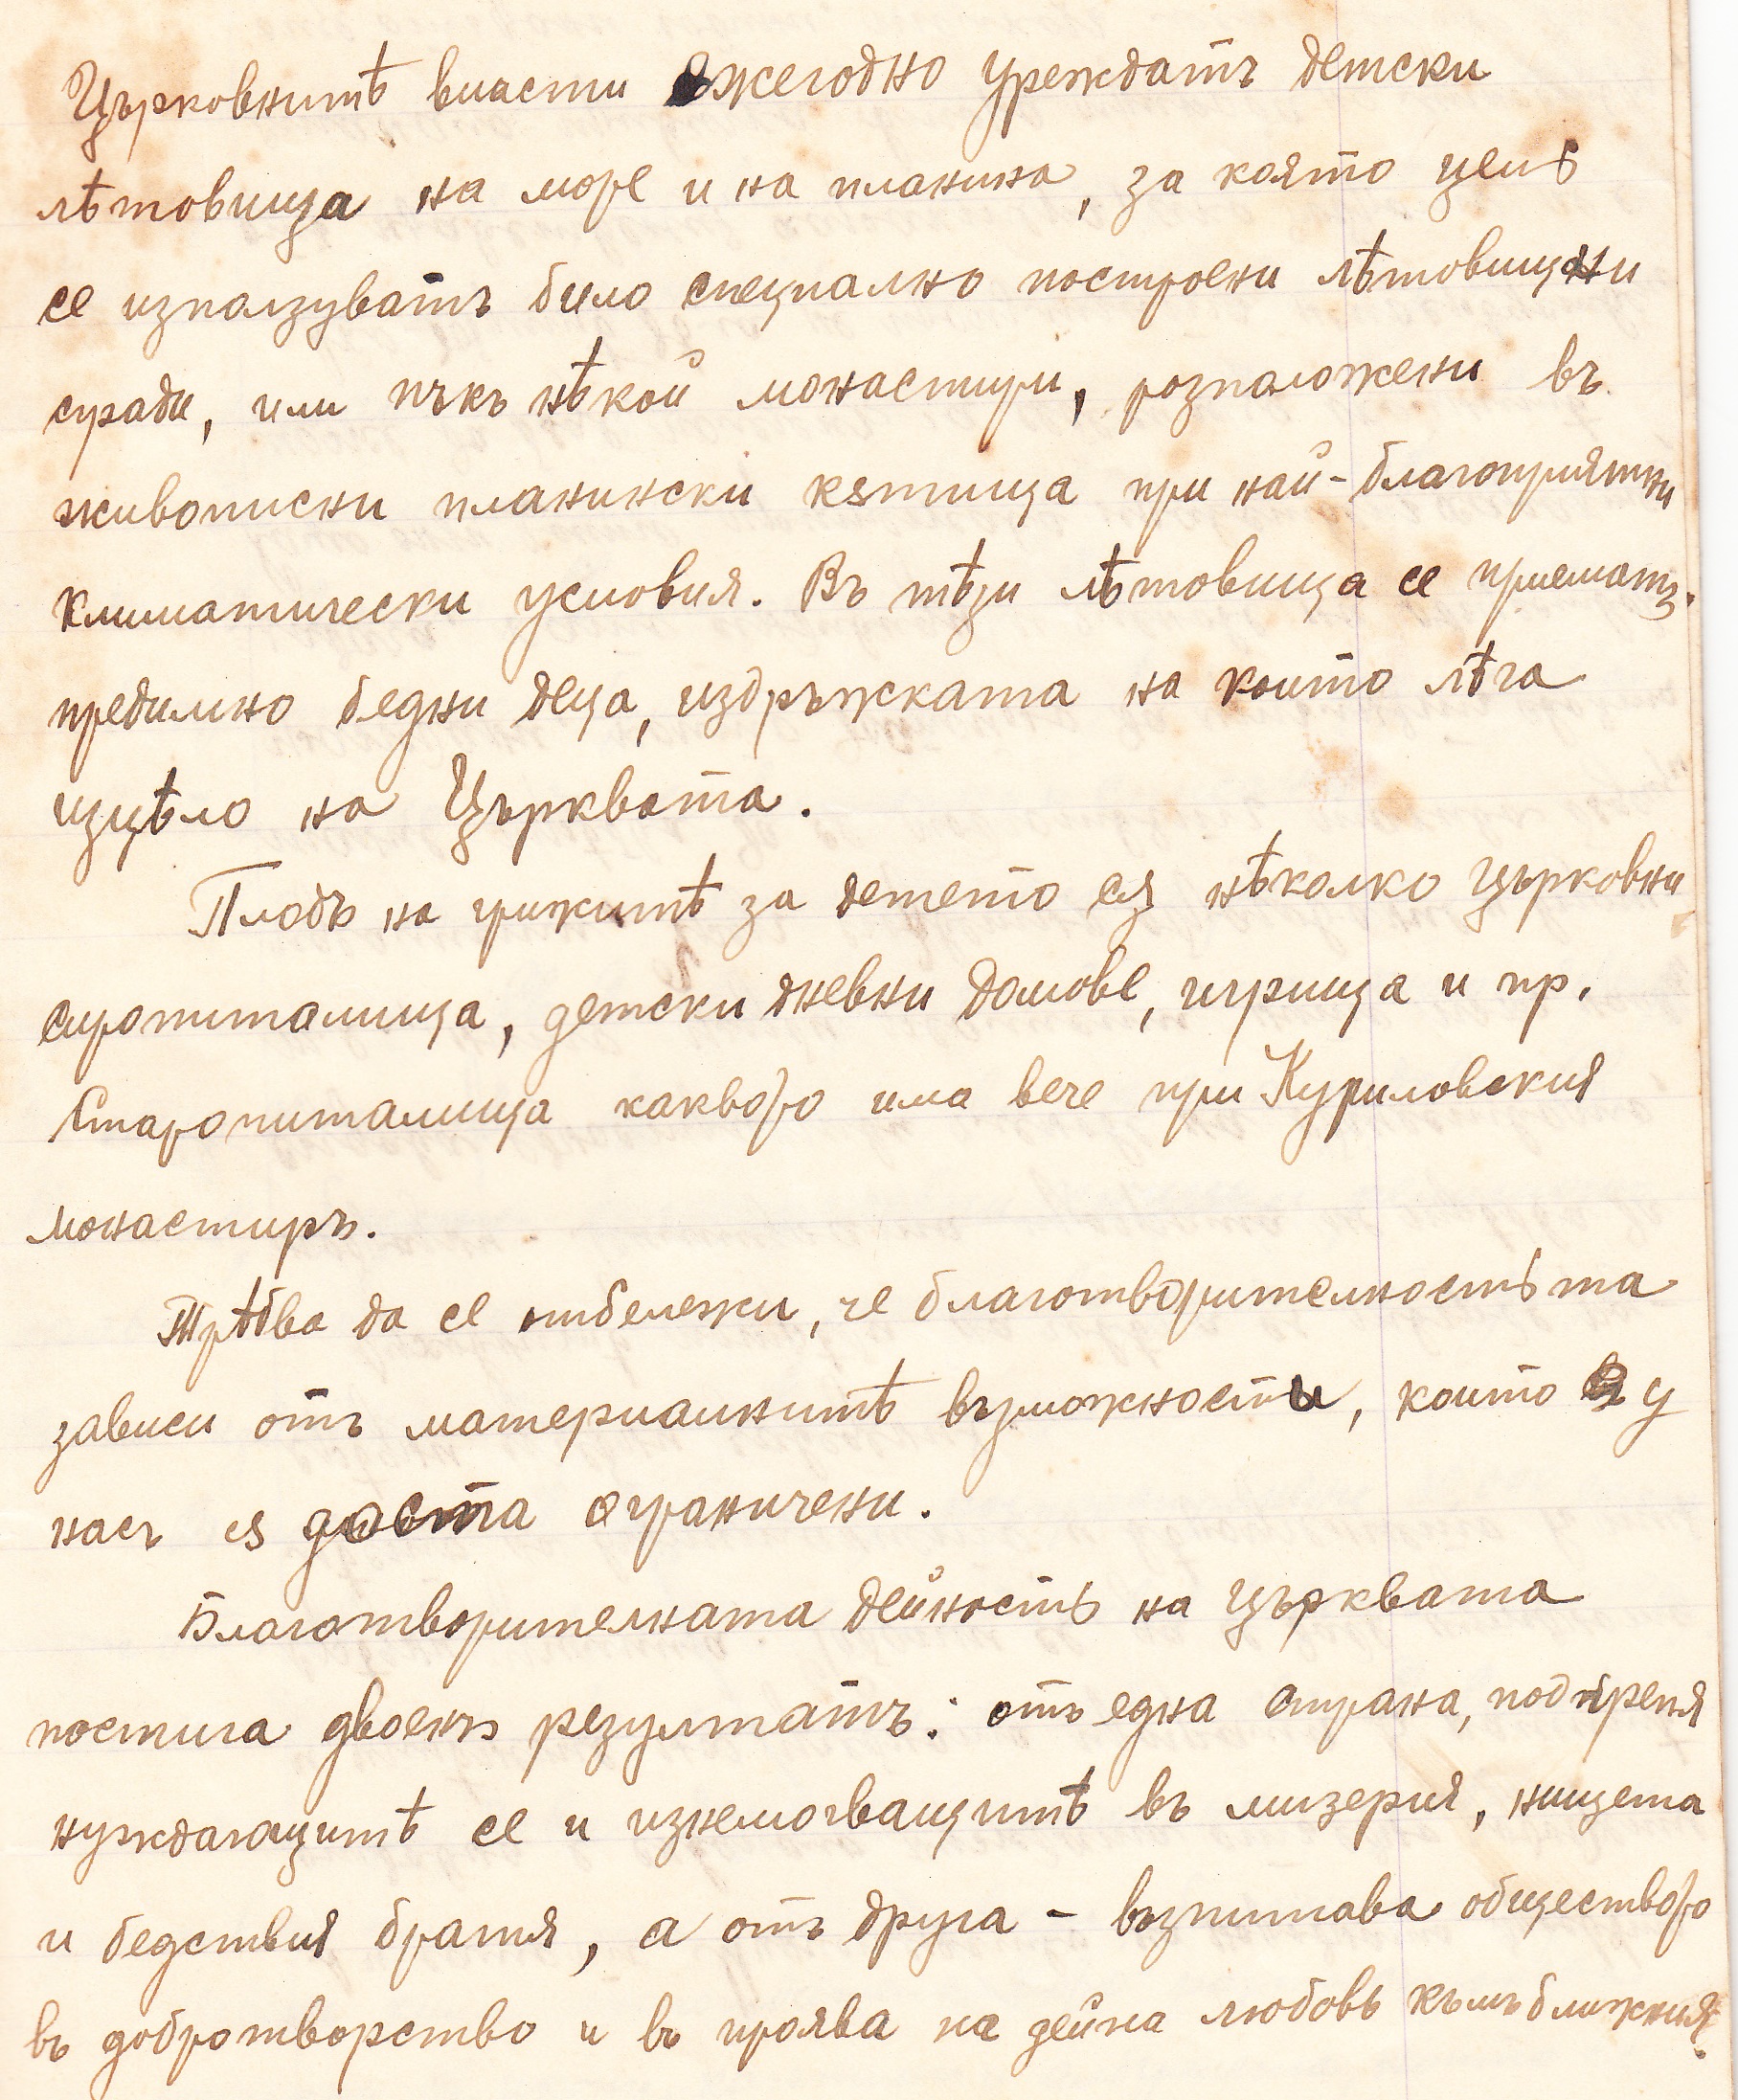 Църковнитѣ власти ежегодно уреждатъ детски
лѣтовища на море и на планина, за която цель
се използуватъ било специално построени лѣтовищни
сгради, или пъкъ нѣкой монастири, розположени въ
живописни планински кѫтища при най-благоприятни
климатически условия. Въ тѣзи лѣтовища се приематъ
предимно бедни деца, издръжката на които лѣга
изцѣло на Църквата.
Плодъ на грижитѣ за детето сѫ нѣколко църковни
сиропиталища, детски дневни домове, игрища и пр.
Старопиталища каквото има вече при Куриловския
монастиръ.
Трѣбва да се отбележи, че благотворителностьта
зависи отъ материалнитѣ възможности, които у
насъ сѫ доста ограничени.
Благотворителната дейность на църквата
постига двоенъ резултатъ: отъ една страна, подкрепя
нуждающитѣ се и изнемогващитѣ въ мизерия, нищета
и бедствия братя, а отъ друга – възпитава обществото
въ добротворство и въ проява на дейна любовь къмъ ближния.